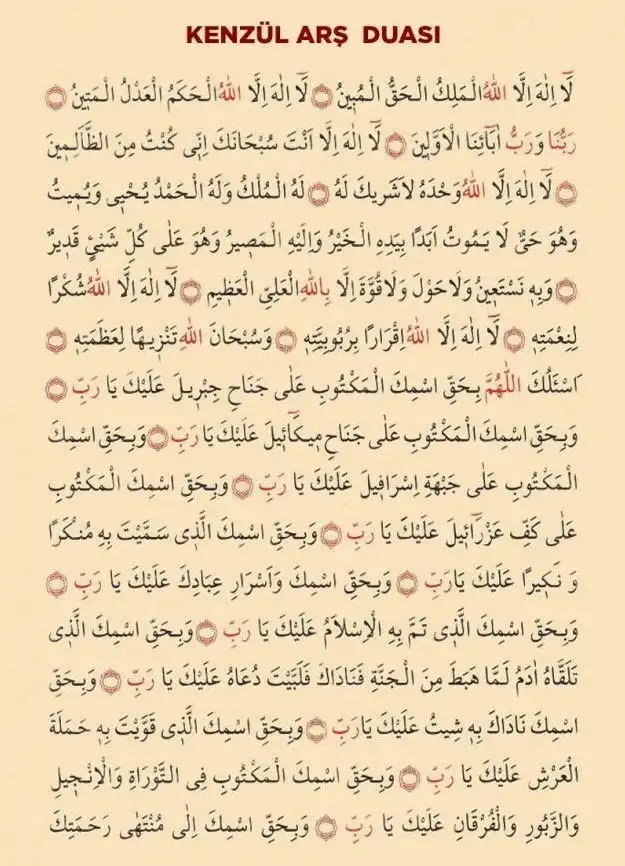 KENZÜL ARŞ DUASI
لَٓا اِلٰهَ اِلَّا اللّٰهُ الْمَلِكُ الْحَقُّ الْمُب۪ينُ ۝ لَٓا اِلٰهَ اِلَّا اللّٰهُ الْحَكَمُ الْعَدْلُ الْمَت۪ينُ ۝
رَبُّنَا وَرَبُّ اٰبَٓائِنَا الْاَوَّل۪ينَ ۝ لَٓا اِلٰهَ اِلَّا اَنْتَ سُبْحَانَكَ اِنّ۪ى كُنْتُ مِنَ الظَّالِم۪ينَ
۝ لَٓا اِلٰهَ اِلَّا اللّٰهُ وَحْدَهُ لَاشَر۪يكَ لَهُ ۝ لَهُ الْمُلْكُ وَلَهُ الْحَمْدُ يُحْي۪ى وَيُم۪يتُ
وَهُوَ حَىٌّ لَا يَمُوتُ اَبَدًا بِيَدِهِ الْخَيْرُ وَاِلَيْهِ الْمَص۪يرُ وَهُوَ عَلٰى كُلِّ شَيْئٍ قَد۪يرٌ
۝ وَبِه۪ نَسْتَع۪ينُ وَلَاحَوْلَ وَلَاقُوَّةَ اِلَّا بِاللّٰهِ الْعَلِىِّ الْعَظ۪يمِ ۝ لَٓا اِلٰهَ اِلَّا اللّٰهُ شُكْرًا
لِنِعْمَتِه۪ ۝ لَٓا اِلٰهَ اِلَّا اللّٰهُ اِقْرَارًا بِرُبُوبِيَّتِه۪ ۝ وَسُبْحَانَ اللّٰهِ تَنْز۪يهًا لِعَظَمَتِه۪ ۝
اَسْئَلُكَ اللّٰهُمَّ بِحَقِّ اسْمِكَ الْمَكْتُوبِ عَلٰى جَنَاحِ جِبْر۪يلَ عَلَيْكَ يَا رَبِّ ۝
وَبِحَقِّ اسْمِكَ الْمَكْتُوبِ عَلٰى جَنَاحِ م۪يكَٓائ۪يلَ عَلَيْكَ يَا رَبِّ ۝ وَبِحَقِّ اسْمِكَ
الْمَكْتُوبِ عَلٰى جَبْهَةِ اِسْرَاف۪يلَ عَلَيْكَ يَا رَبِّ ۝ وَبِحَقِّ اسْمِكَ الْمَكْتُوبِ
عَلٰى كَفِّ عَزْرَٓائ۪يلَ عَلَيْكَ يَا رَبِّ ۝ وَبِحَقِّ اسْمِكَ الَّذ۪ى سَمَّيْتَ بِهِ مُنْكَرًا
وَ نَك۪يرًا عَلَيْكَ يَارَبِّ ۝ وَبِحَقِّ اسْمِكَ وَاَسْرَارِ عِبَادِكَ عَلَيْكَ يَا رَبِّ ۝
وَبِحَقِّ اسْمِكَ الَّذ۪ى تَمَّ بِهِ الْاِسْلَامُ عَلَيْكَ يَا رَبِّ ۝ وَبِحَقِّ اسْمِكَ الَّذ۪ى
تَلَقَّاهُ اٰدَمُ لَمَّا هَبَطَ مِنَ الْجَنَّةِ فَنَادَاكَ فَلَبَّيْتَ دُعَاهُ عَلَيْكَ يَا رَبِّ ۝ وَبِحَقِّ
اسْمِكَ نَادَاكَ بِه۪ ش۪يثُ عَلَيْكَ يَارَبِّ ۝ وَبِحَقِّ اسْمِكَ الَّذ۪ى قَوَّيْتَ بِه۪ حَمَلَةَ
الْعَرْشِ عَلَيْكَ يَا رَبِّ ۝ وَبِحَقِّ اسْمِكَ الْمَكْتُوبِ فِى التَّوْرَاةِ وَالْاِنْج۪يلِ
وَالزَّبُورِ وَالْفُرْقَانِ عَلَيْكَ يَا رَبِّ ۝ وَبِحَقِّ اسْمِكَ اِلٰى مُنْتَهٰى رَحْمَتِكَ